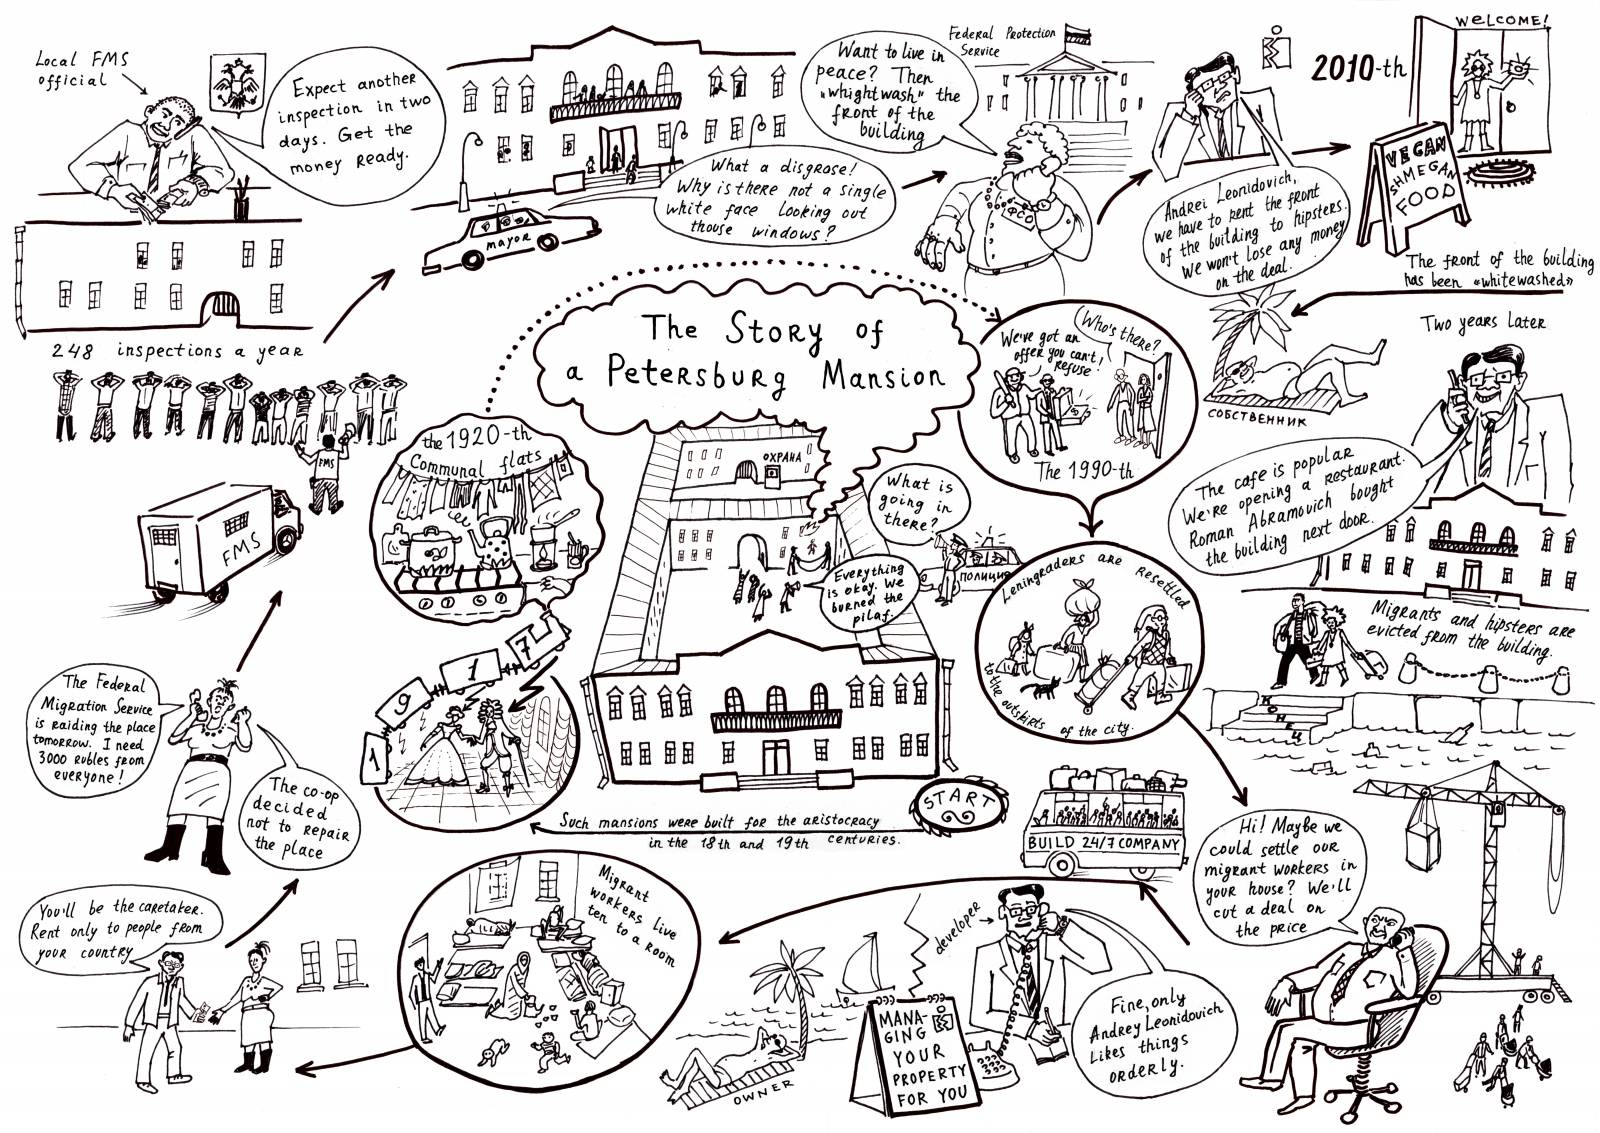 The Story of
a Petersburg Mansion
START
Such mansions were built for the aristocracy
in the 18th and 19th centuries.
1 9 1 7
the 1920-th
Communal flats
We've got an
offer you can't
refuse!
Who's there?
The 1990-th
Leningraders are resettled
to the outskirts of the city.
ОХРАНА
What is
going in
there?
ПОЛИЦИЯ
Everything
is okay. We
burned the
pilaf.
Hi! Maybe we
could settle our
migrant workers in
your house? We'll
cut a deal on
the price
developer
Fine, only
Andrey Leonidovich
likes things
orderly.
MANA-
GING
YOUR
PROPERTY
FOR YOU
OWNER
BUILD 24/7 COMPANY
Migrant
workers live
ten to a room
You'll be the caretaker.
Rent only to people from
your country
The Federal
Migration Service
is raiding the place
tomorrow. I need
3000 rubles from
everyone!
The co-op
decided
not to repair
the place
FMS
FMS
248 inspections a year
Local FMS
official
Expect another
inspection in two
days. Get the
money ready.
mayor
What a disgrose!
Why is there not a single
white face looking out
thouse windows?
Want to live in
peace? Then
"whightwash" the
front of the
building
Federal Protection
Service
ФСО
Andrei Leonidovich,
we have to rent the front
of the building to hipsters.
We won't lose any money
on the deal.
2010-th
WELCOME!
VEGAN
SHMEGAN
FOOD
The front of the building
has been «whitewashed»
СОБСТВЕННИК
Two years later
The cafe is popular
We're opening a restaurant.
Roman Abramovich bought
the building next door.
Migrants and hipsters are
evicted from the building.
КОНЕЦ